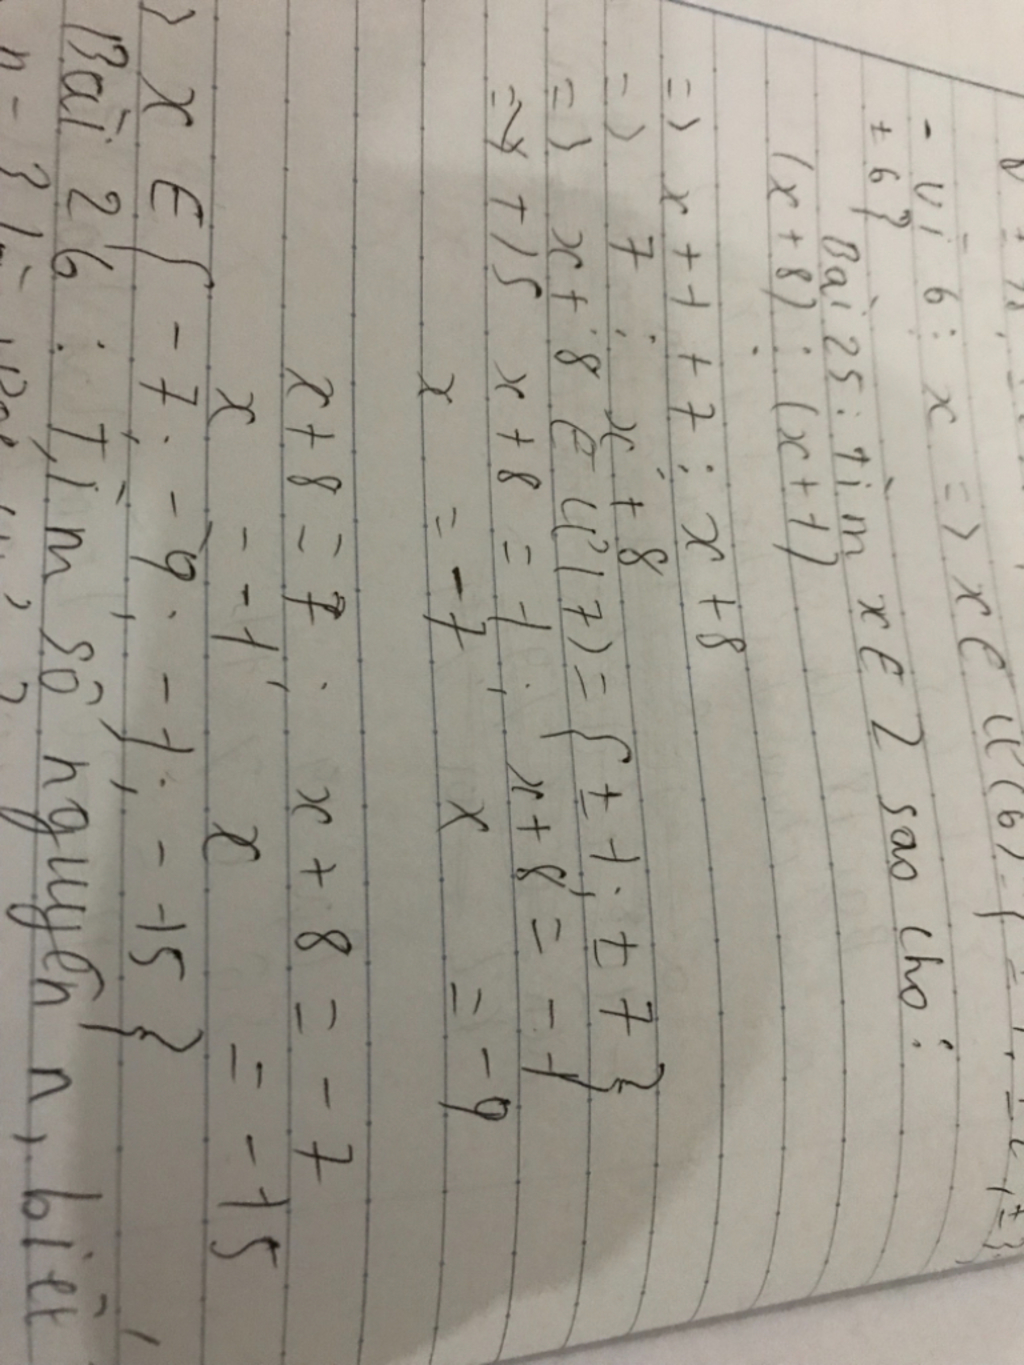 - Vì 6 ⋮ x => x ∈ Ư(6) = { ± 1, ± 2, ±3
± 6}
Bài 25: Tìm x ∈ Z sao cho:
(x+8) ⋮ (x+1)
=> x+1+7 ⋮ x+8
=> 7 ⋮ x+8
=> x+8 ∈ Ư(7) = {±1; ±7}
x+8 = 1; x+8 = -1
x = -7 x = -9
x+8 = 7; x+8 = -7
x = -1; x = -15
x ∈ {-7; -9; -1; -15}
Bài 26: Tìm số nguyên n, biết